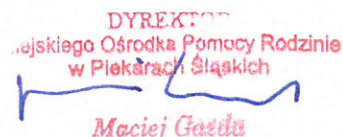 DYREKT
ejskiego Ośrodka Pomocy Rodzinie
w Piekarach Śląskich
Maciej Gazda